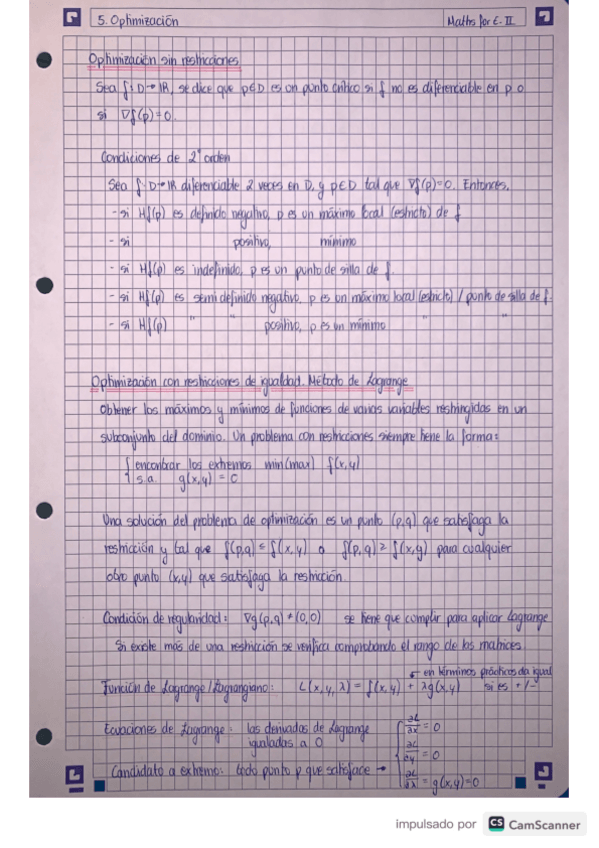 5. Optimización
Maths for E. II
Optimización sin restricciones
Sea f: D→ℝ, se dice que p∈D es un punto crítico si f no es diferenciable en p o
si ∇f(p)=0.
Condiciones de 2º orden
Sea f: D→ℝ diferenciable 2 veces en D, y p∈D tal que ∇f(p)=0. Entonces,
- si Hf(p) es definido negativo, p es un máximo local (estricto) de f
- si positivo, mínimo
- si Hf(p) es indefinido, p es un punto de silla de f.
- si Hf(p) es semidefinido negativo, p es un máximo local (estricto) / punto de silla de f.
- si Hf(p) " " positivo, p es un mínimo " "
Optimización con restricciones de igualdad. Método de Lagrange
Obtener los máximos y mínimos de funciones de varias variables restringidos en un
subconjunto del dominio. Un problema con restricciones siempre tiene la forma:
{ encontrar los extremos min(max) f(x,y)
s.a. g(x,y) = 0
Una solución del problema de optimización es un punto (p,q) que satisfaga la
restricción y tal que f(p,q) ≤ f(x,y) o f(p,q) ≥ f(x,y) para cualquier
otro punto (x,y) que satisfaga la restricción.
Condición de regularidad: ∇g(p,q) ≠ (0,0) se tiene que cumplir para aplicar Lagrange
Si existe más de una restricción se verifica comprobando el rango de las matrices.
← en términos prácticos da igual
Función de Lagrange / Lagrangiano: L(x,y,λ) = f(x,y) + λg(x,y) si es +/-
Ecuaciones de Lagrange: las derivadas de Lagrange
igualadas a 0
{ ∂L/∂x = 0
∂L/∂y = 0
Candidato a extremo: todo punto p que satisface →
∂L/∂λ = g(x,y)=0
impulsado por CS CamScanner